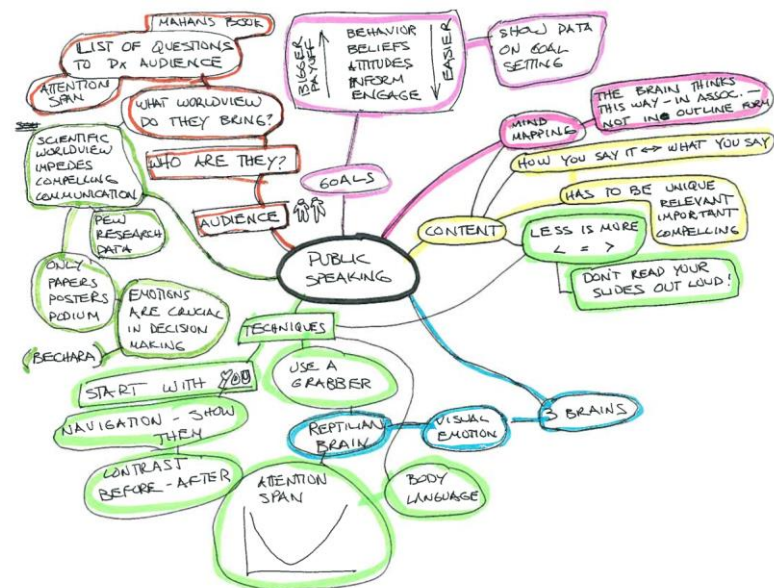 MAHANS BOOK
LIST OF QUESTIONS
TO Dx AUDIENCE
ATTENTION
SPAN
WHAT WORLDVIEW
DO THEY BRING?
WHO ARE THEY?
AUDIENCE
SCIENTIFIC
WORLDVIEW
IMPEDES
COMPELLING
COMMUNICATION
PEW
RESEARCH
DATA
ONLY
PAPERS
POSTERS
PODIUM
EMOTIONS
ARE CRUCIAL
IN DECISION
MAKING
(BECHARA)
BIGGER
PAYOFF
BEHAVIOR
BELIEFS
ATTITUDES
INFORM
ENGAGE
EASIER
SHOW DATA
ON GOAL
SETTING
GOALS
PUBLIC
SPEAKING
MIND
MAPPING
THE BRAIN THINKS
THIS WAY - IN ASSOC. -
NOT IN OUTLINE FORM
HOW YOU SAY IT ↔ WHAT YOU SAY
CONTENT
HAS TO BE UNIQUE
RELEVANT
IMPORTANT
COMPELLING
LESS IS MORE
< = >
DON'T READ YOUR
SLIDES OUT LOUD!
TECHNIQUES
START WITH YOU
NAVIGATION - SHOW
THEM
CONTRAST
BEFORE - AFTER
USE A
GRABBER
REPTILIAN
BRAIN
VISUAL
EMOTION
3 BRAINS
ATTENTION
SPAN
BODY
LANGUAGE